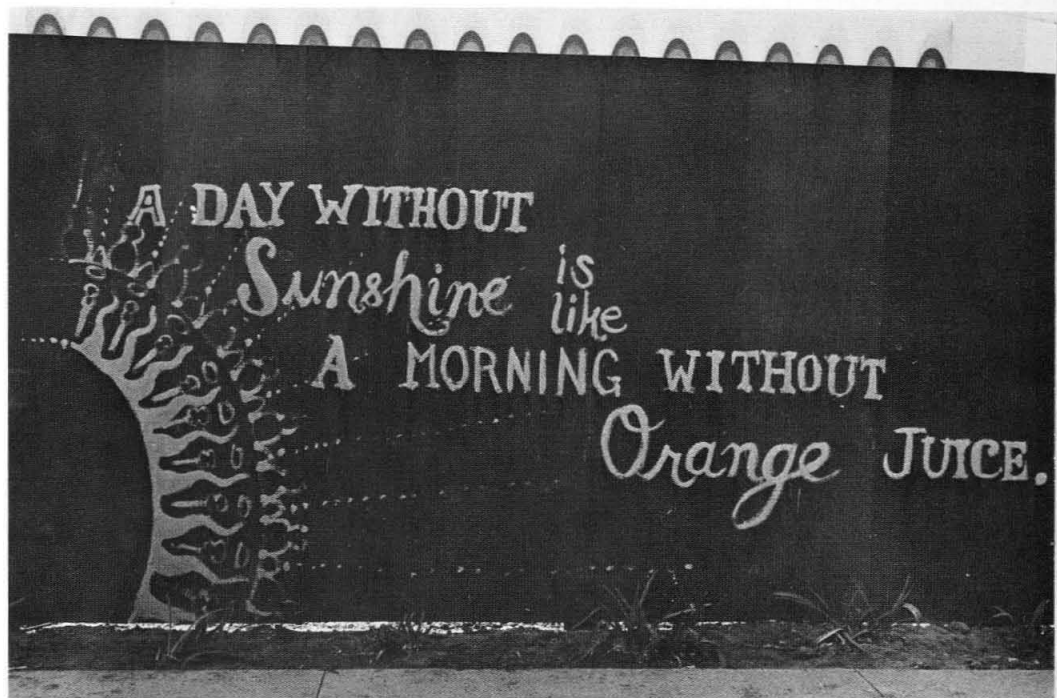 A DAY WITHOUT
Sunshine is
like
A MORNING WITHOUT
Orange JUICE.